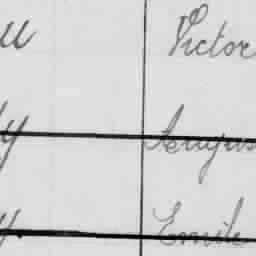 u Victor
y Augus
y. Emile